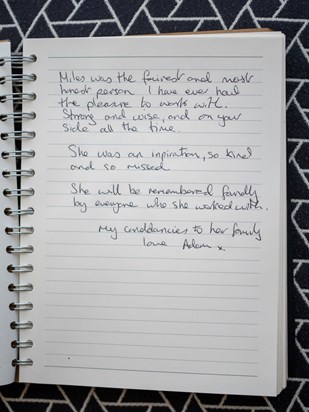 Miles was the fairest and most
honest person I have ever had
the pleasure to work with.
Strong and wise, and on your
side all the time.
She was an inpiration, so kind
and so missed
She will be remembered fondly
by everyone who she worked with.
My conddancies to her family
love Adam x